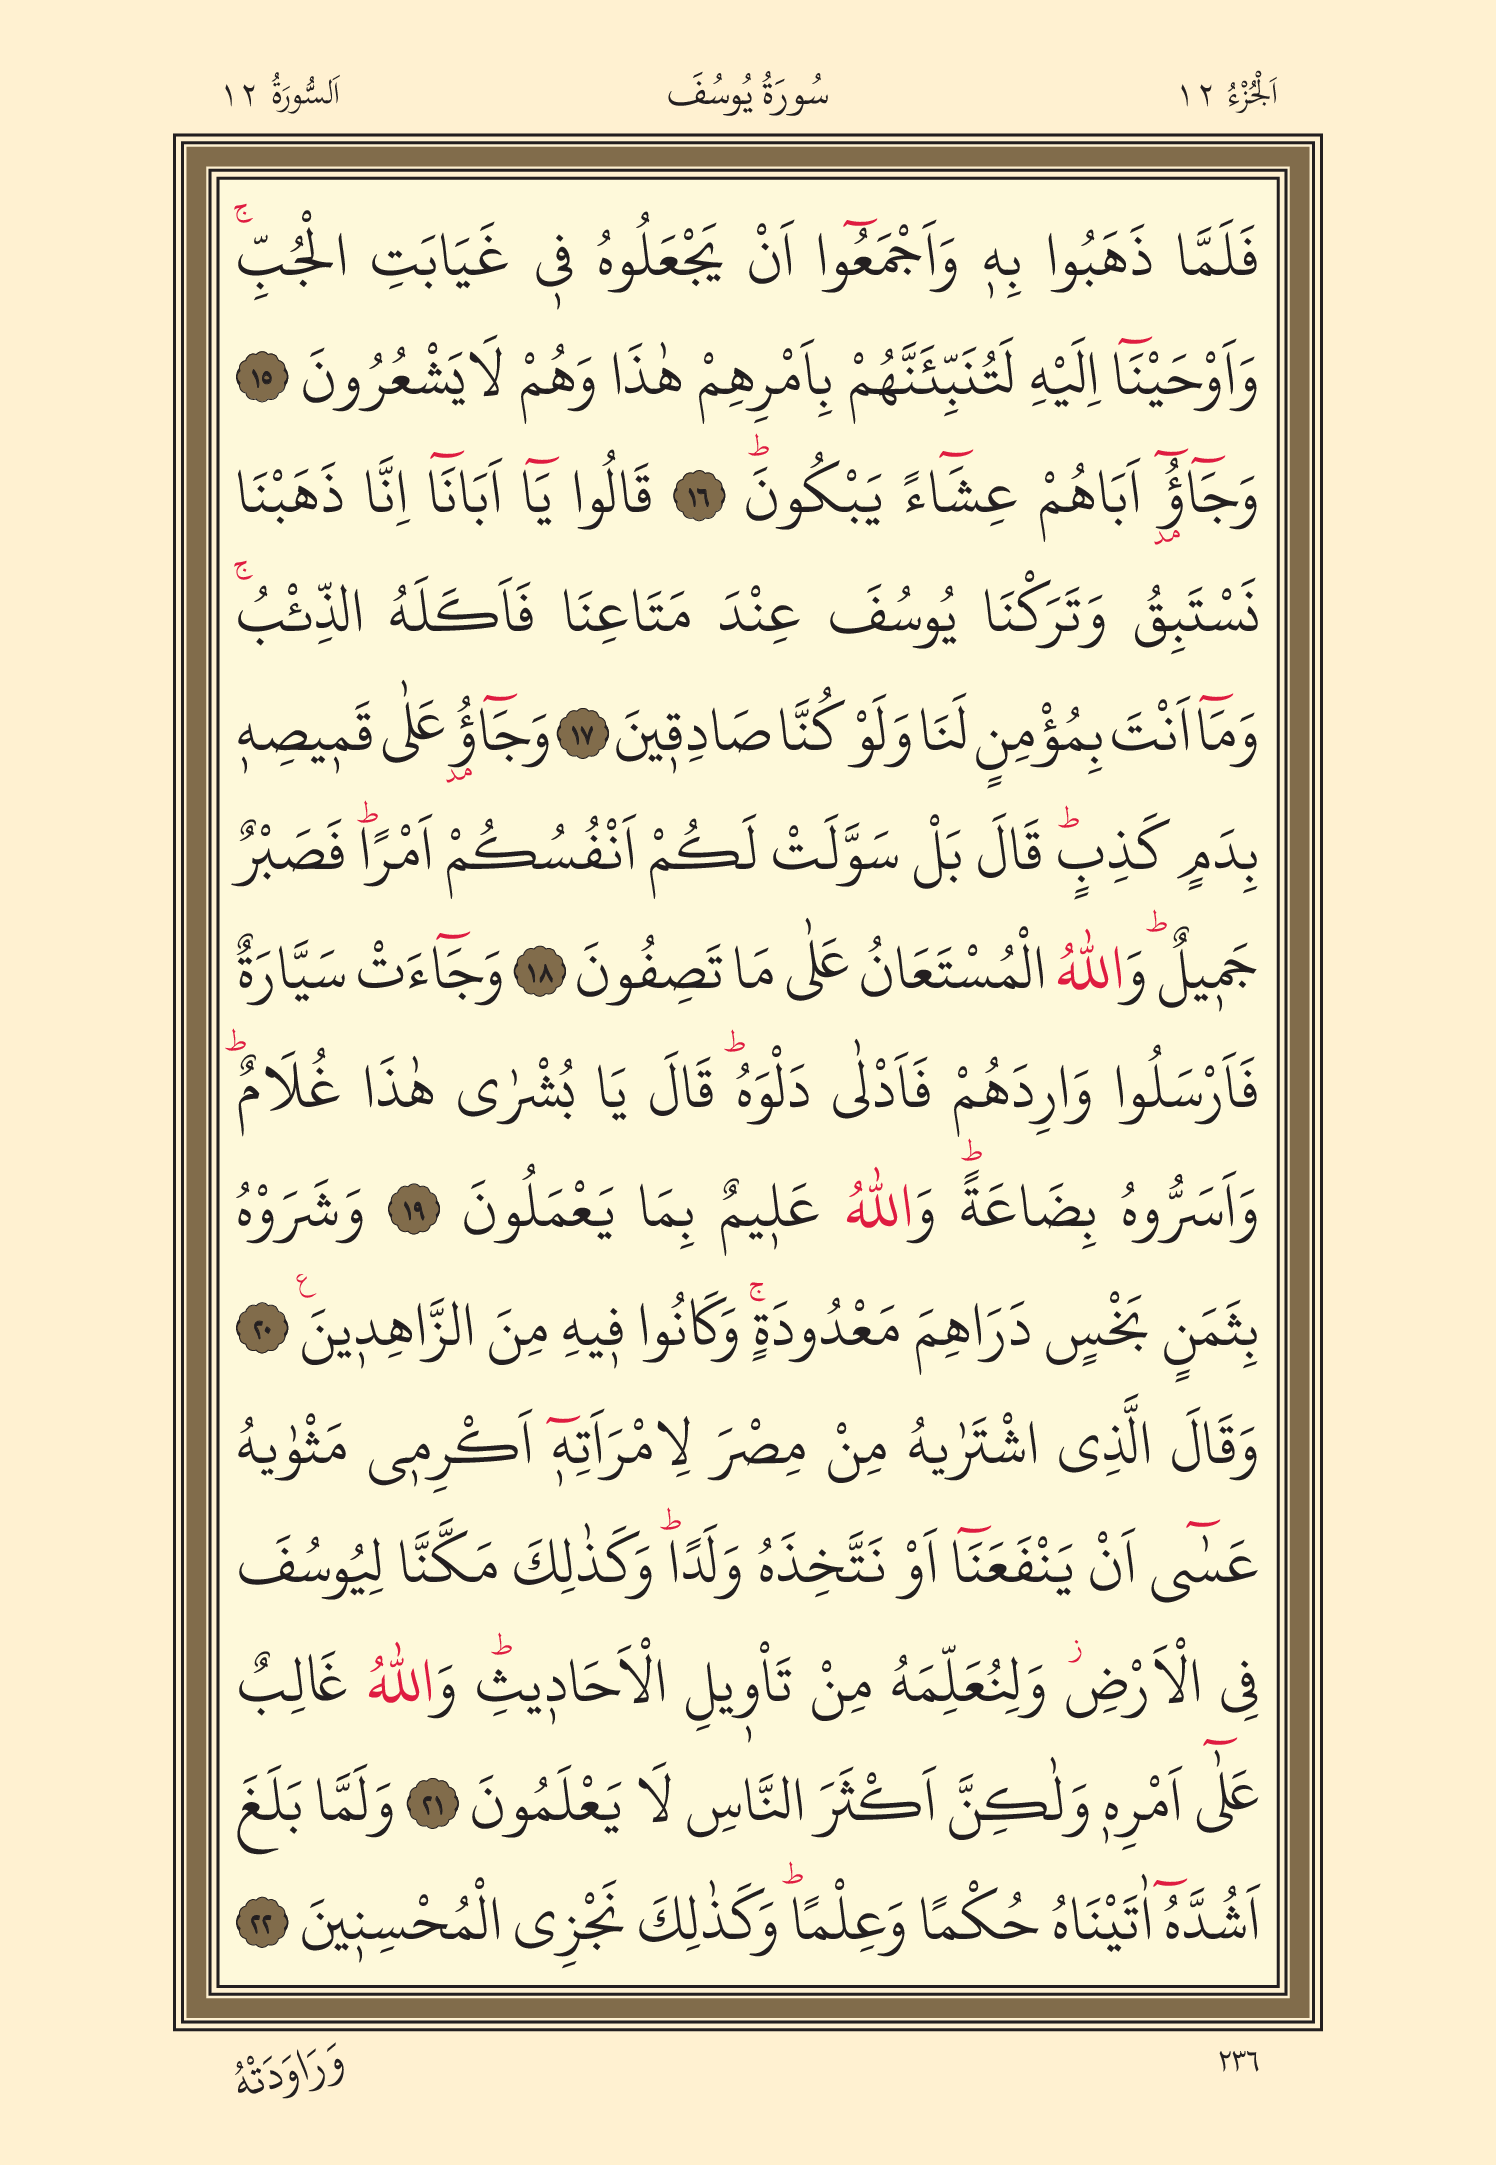 اَلْجُزْءُ ١٢ سُورَةُ يُوسُفَ اَلسُّورَةُ ١٢
فَلَمَّا ذَهَبُوا بِه۪ وَاَجْمَعُٓوا اَنْ يَجْعَلُوهُ ف۪ي غَيَابَتِ الْجُبِّۚ
وَاَوْحَيْنَٓا اِلَيْهِ لَتُنَبِّئَنَّهُمْ بِاَمْرِهِمْ هٰذَا وَهُمْ لَا يَشْعُرُونَ ١٥
وَجَٓاؤُٓ۫ اَبَاهُمْ عِشَٓاءً يَبْكُونَۜ ١٦ قَالُوا يَٓا اَبَانَٓا اِنَّا ذَهَبْنَا
نَسْتَبِقُ وَتَرَكْنَا يُوسُفَ عِنْدَ مَتَاعِنَا فَاَكَلَهُ الذِّئْبُۚ
وَمَٓا اَنْتَ بِمُؤْمِنٍ لَنَا وَلَوْ كُنَّا صَادِق۪ينَ ١٧ وَجَٓاؤُ۫ عَلٰى قَم۪يصِه۪
بِدَمٍ كَذِبٍۜ قَالَ بَلْ سَوَّلَتْ لَكُمْ اَنْفُسُكُمْ اَمْرًاۜ فَصَبْرٌ
جَم۪يلٌۜ وَاللّٰهُ الْمُسْتَعَانُ عَلٰى مَا تَصِفُونَ ١٨ وَجَٓاءَتْ سَيَّارَةٌ
فَاَرْسَلُوا وَارِدَهُمْ فَاَدْلٰى دَلْوَهُۜ قَالَ يَا بُشْرٰى هٰذَا غُلَامٌۜ
وَاَسَرُّوهُ بِضَاعَةًۜ وَاللّٰهُ عَل۪يمٌ بِمَا يَعْمَلُونَ ١٩ وَشَرَوْهُ
بِثَمَنٍ بَخْسٍ دَرَاهِمَ مَعْدُودَةٍۚ وَكَانُوا ف۪يهِ مِنَ الزَّاهِد۪ينَ ع ٢٠
وَقَالَ الَّذِي اشْتَرٰيهُ مِنْ مِصْرَ لِامْرَاَتِه۪ٓ اَكْرِم۪ي مَثْوٰيهُ
عَسٰٓى اَنْ يَنْفَعَنَٓا اَوْ نَتَّخِذَهُ وَلَدًاۜ وَكَذٰلِكَ مَكَّنَّا لِيُوسُفَ
فِي الْاَرْضِۘ وَلِنُعَلِّمَهُ مِنْ تَاْو۪يلِ الْاَحَاد۪يثِۜ وَاللّٰهُ غَالِبٌ
عَلٰٓى اَمْرِه۪ وَلٰكِنَّ اَكْثَرَ النَّاسِ لَا يَعْلَمُونَ ٢١ وَلَمَّا بَلَغَ
اَشُدَّهُٓ اٰتَيْنَاهُ حُكْمًا وَعِلْمًاۜ وَكَذٰلِكَ نَجْزِي الْمُحْسِن۪ينَ ٢٢
٢٣٦ وَرَاوَدَتْهُ